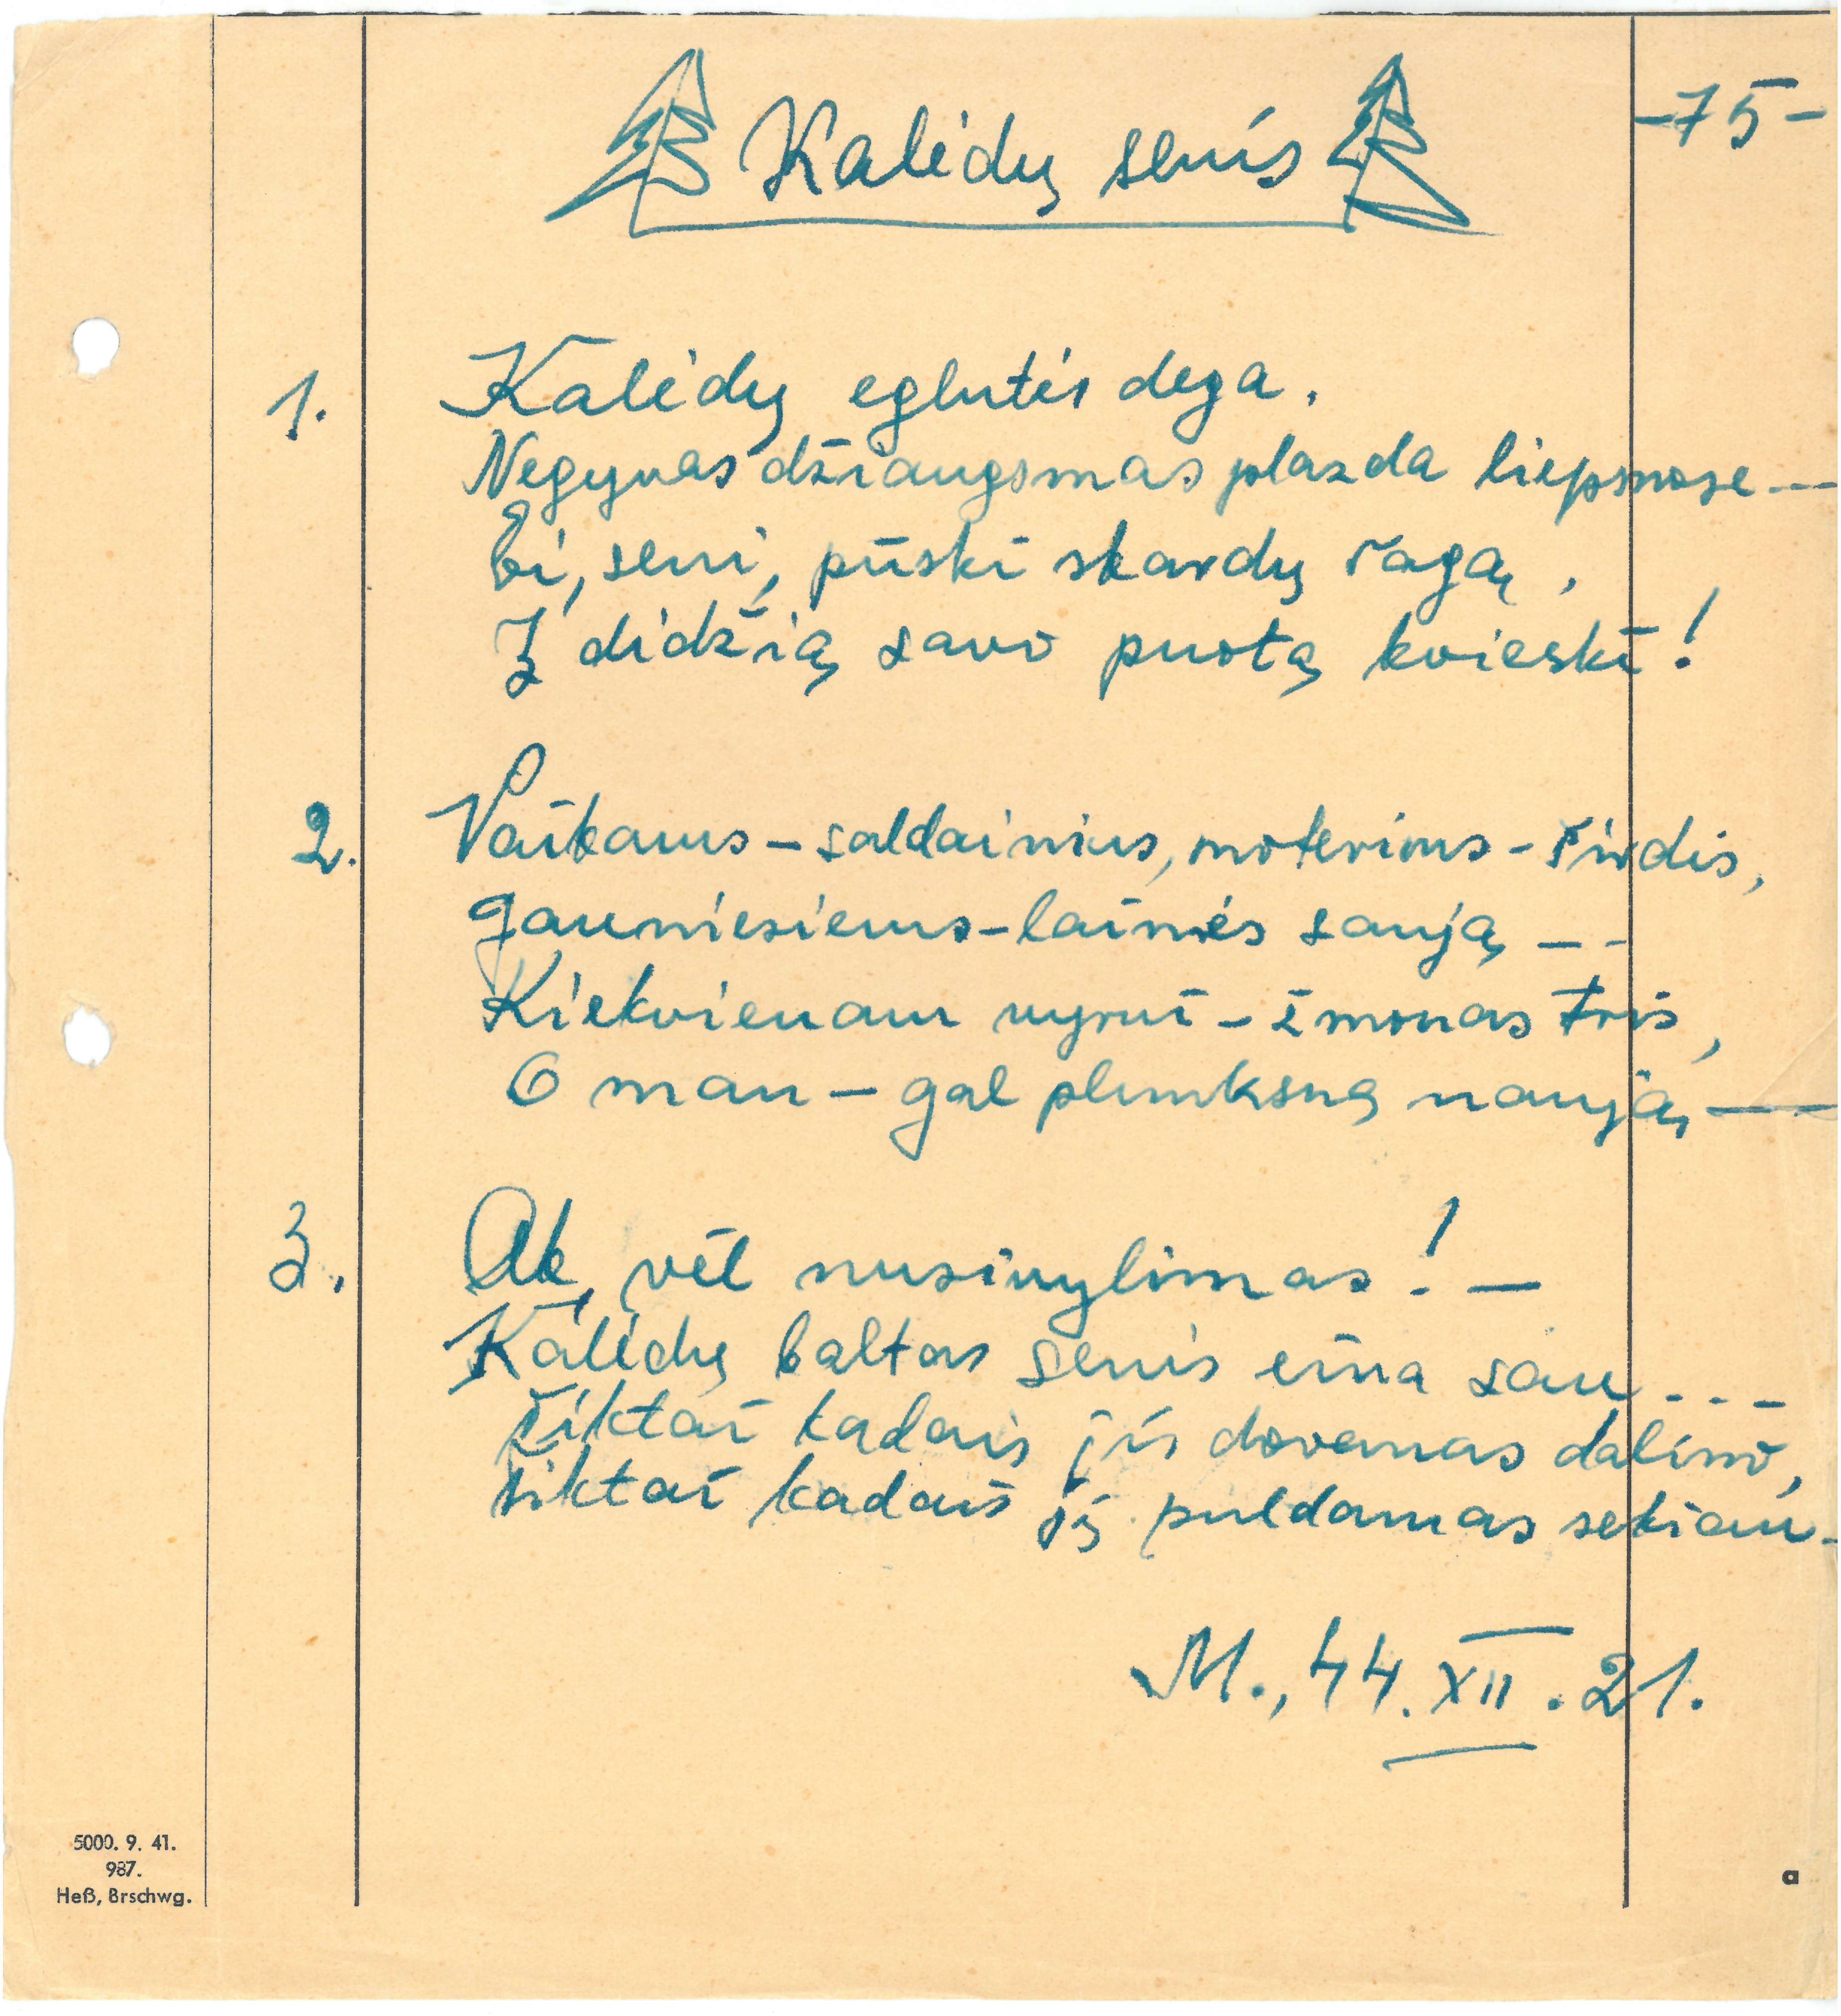 -75-
Kalėdų senis
1. Kalėdų eglutės dega.
Negyvas džiaugsmas plazda liepsnose---
Ei, seni, pūski skardų ragą,
Į didžią savo puotą kvieski!
2. Vaikams - saldainius, moterims - širdis,
jauniesiems - laimės saują --
Kiekvienam vyrui - žmonas tris,
O man - gal plunksną naują, --
3. Ak, vėl nusivylimas! -
Kalėdų baltas senis eina sau ---
Tiktai kadais jis dovanas dalino,
tiktai kadais jį puldamas sekiau-
M., 44.XII.21.
5000. 9. 41.
987.
Heß, Brschwg.
a